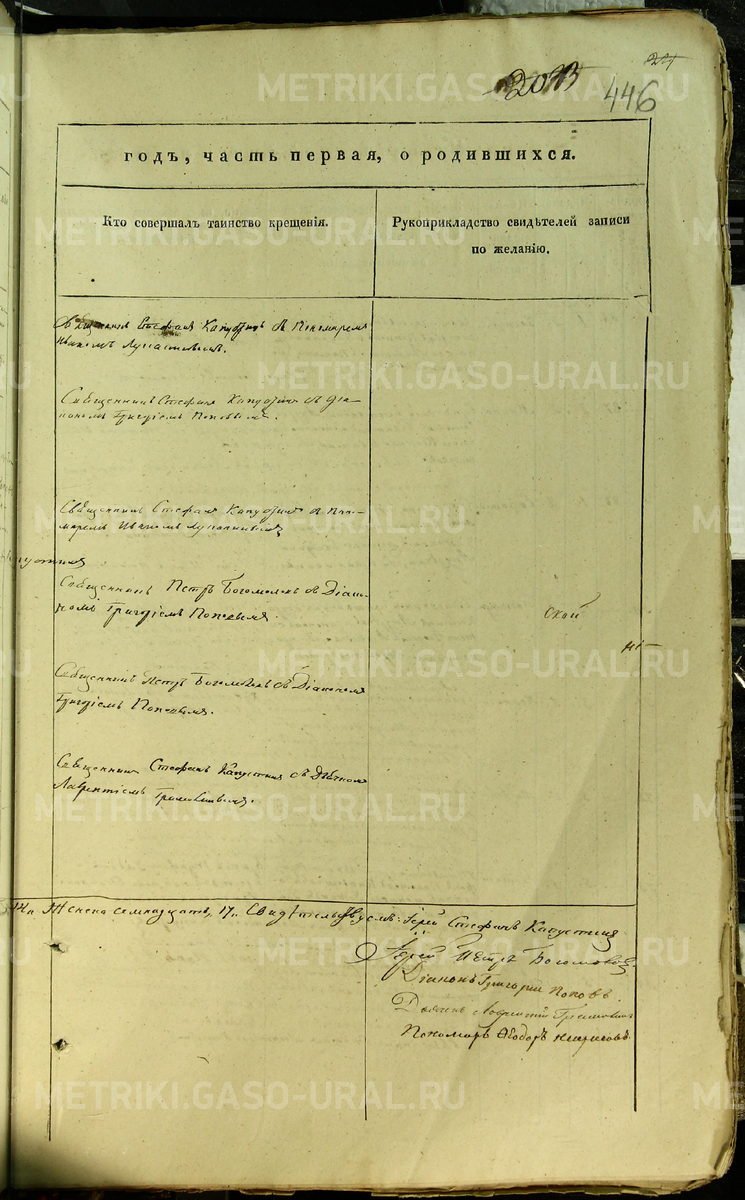 24
2013
446
годъ, часть первая, о родившихся.
Кто совершалъ таинство крещенія.
Рукоприкладство свидѣтелей записи
по желанію.
Священникъ Стефанъ Капустинъ съ Пономаремъ
Священникъ Стефанъ Капустинъ съ Діа-
кономъ Григоріемъ Поповымъ.
Священникъ Стефанъ Капустинъ съ Поно-
маремъ Иваномъ
Священникъ Петръ Богомоловъ съ Діако-
номъ Григоріемъ Поповымъ.
ской
Священникъ Петръ Богомоловъ съ Діакономъ
Григоріемъ Поповымъ.
Священникъ Стефанъ Капустинъ съ Дьячкомъ
Лаврентіемъ
Женска семнадцать, 17,, Свидѣтельствуемъ: Іерей Стефанъ Капустинъ
Іерей Петръ Богомоловъ
Діаконъ Григорій Поповъ.
Дьячекъ Лаврентій
Пономарь Ѳеодоръ
METRIKI.GASO-URAL.RU